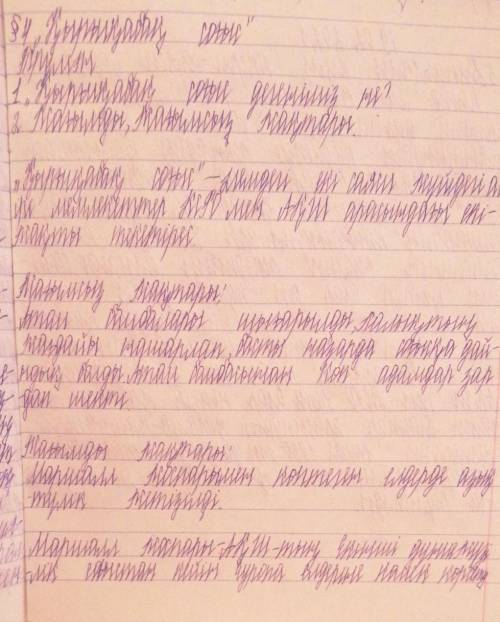 §4 „Қырғиқабақ соғыс"
Жоспары
1. „Қырғиқабақ соғыс дегеніміз не?
2. Жағымды, Жағымсыз жақтары.
„Қырғиқабақ соғыс" – әлемдегі екі саяси жүйедегі а
ірі мемлекеттер КСРО мен АҚШ арасындағы екі-
жақты текетірес
Жағымсыз жақтары:
Атом бомбалары шығарылды, халықтың
жағдайы нашарлап, басты назарда соғысқа дай-
ындық болды. Атом бомбасынан көп адамдар зар-
дап шекті.
Жағымды жақтары:
Маршалл жоспарымен көптеген елдерге азық
түлік жеткізілді.
Маршалл жоспары – АҚШ-тың Екінші дүниежүзі-
лік соғыстан кейін Еуропа елдеріне көмек көрсету